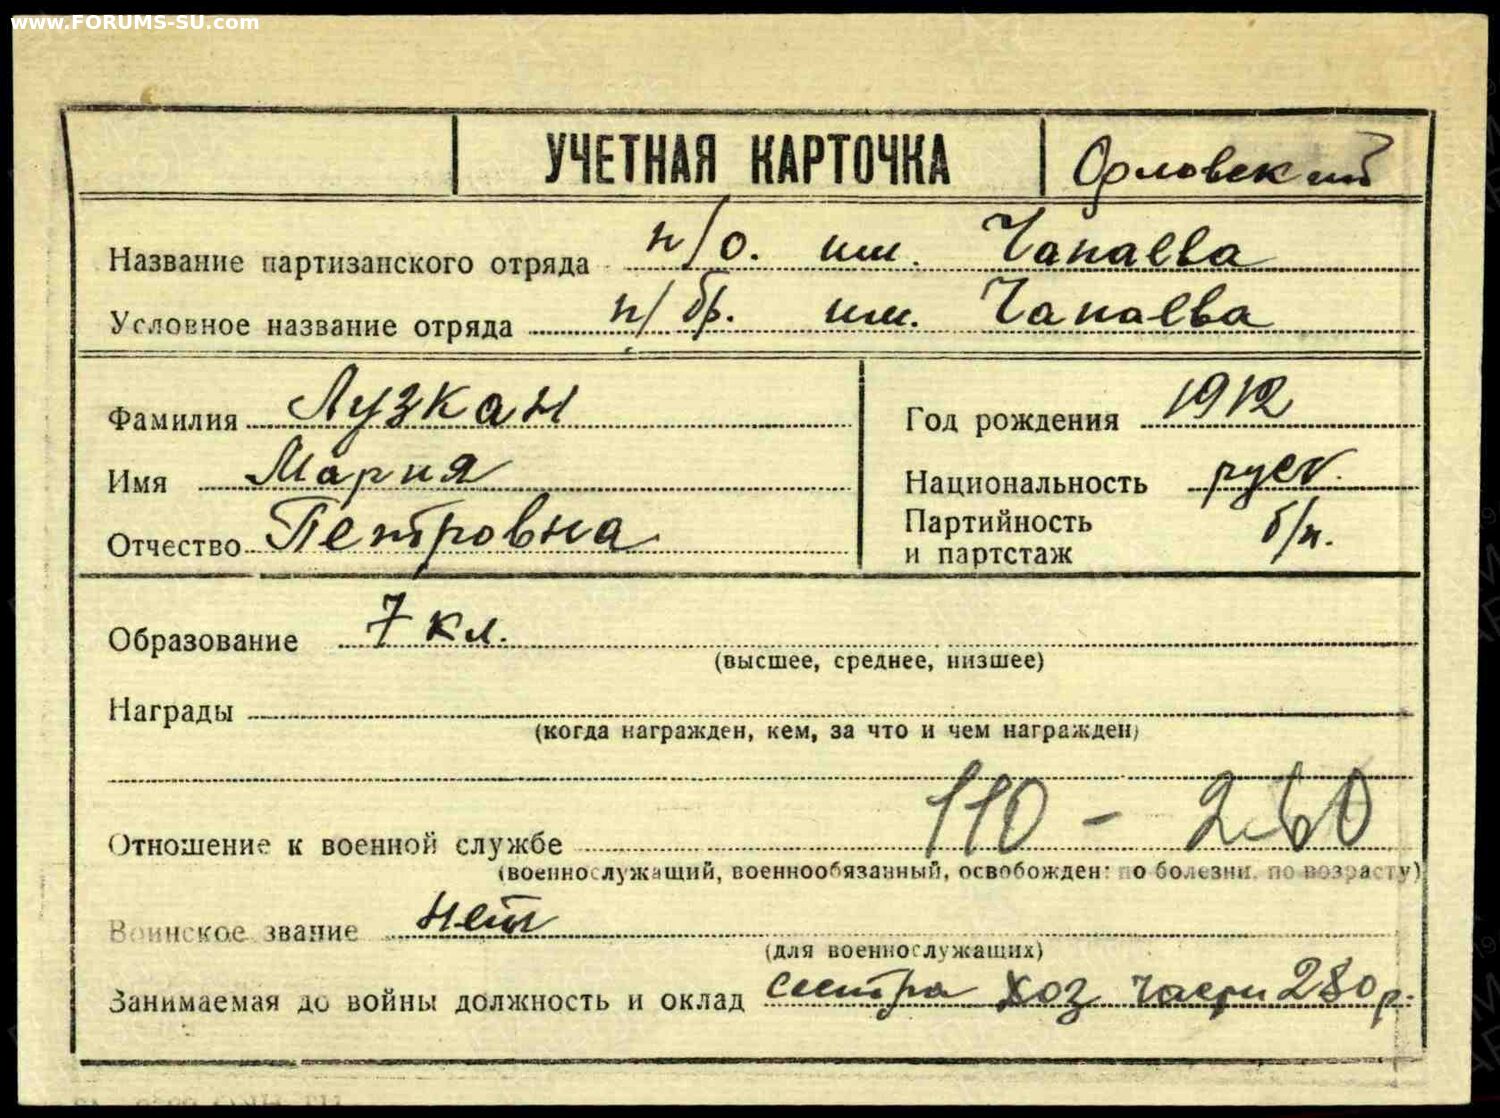 www.FORUMS-SU.com
УЧЕТНАЯ КАРТОЧКА
Орловский
Название партизанского отряда п/о. им. Чапаева
Условное название отряда п/бр. им. Чапаева
Фамилия Лузкан
Имя Мария
Отчество Петровна
Год рождения 1912
Национальность русск.
Партийность
и партстаж б/п.
Образование 7 кл.
(высшее, среднее, низшее)
Награды
(когда награжден, кем, за что и чем награжден)
110 - 260
Отношение к военной службе
(военнослужащий, военнообязанный, освобожден: по болезни, по возрасту)
Воинское звание нет
(для военнослужащих)
Занимаемая до войны должность и оклад сестра хоз части 280 р.